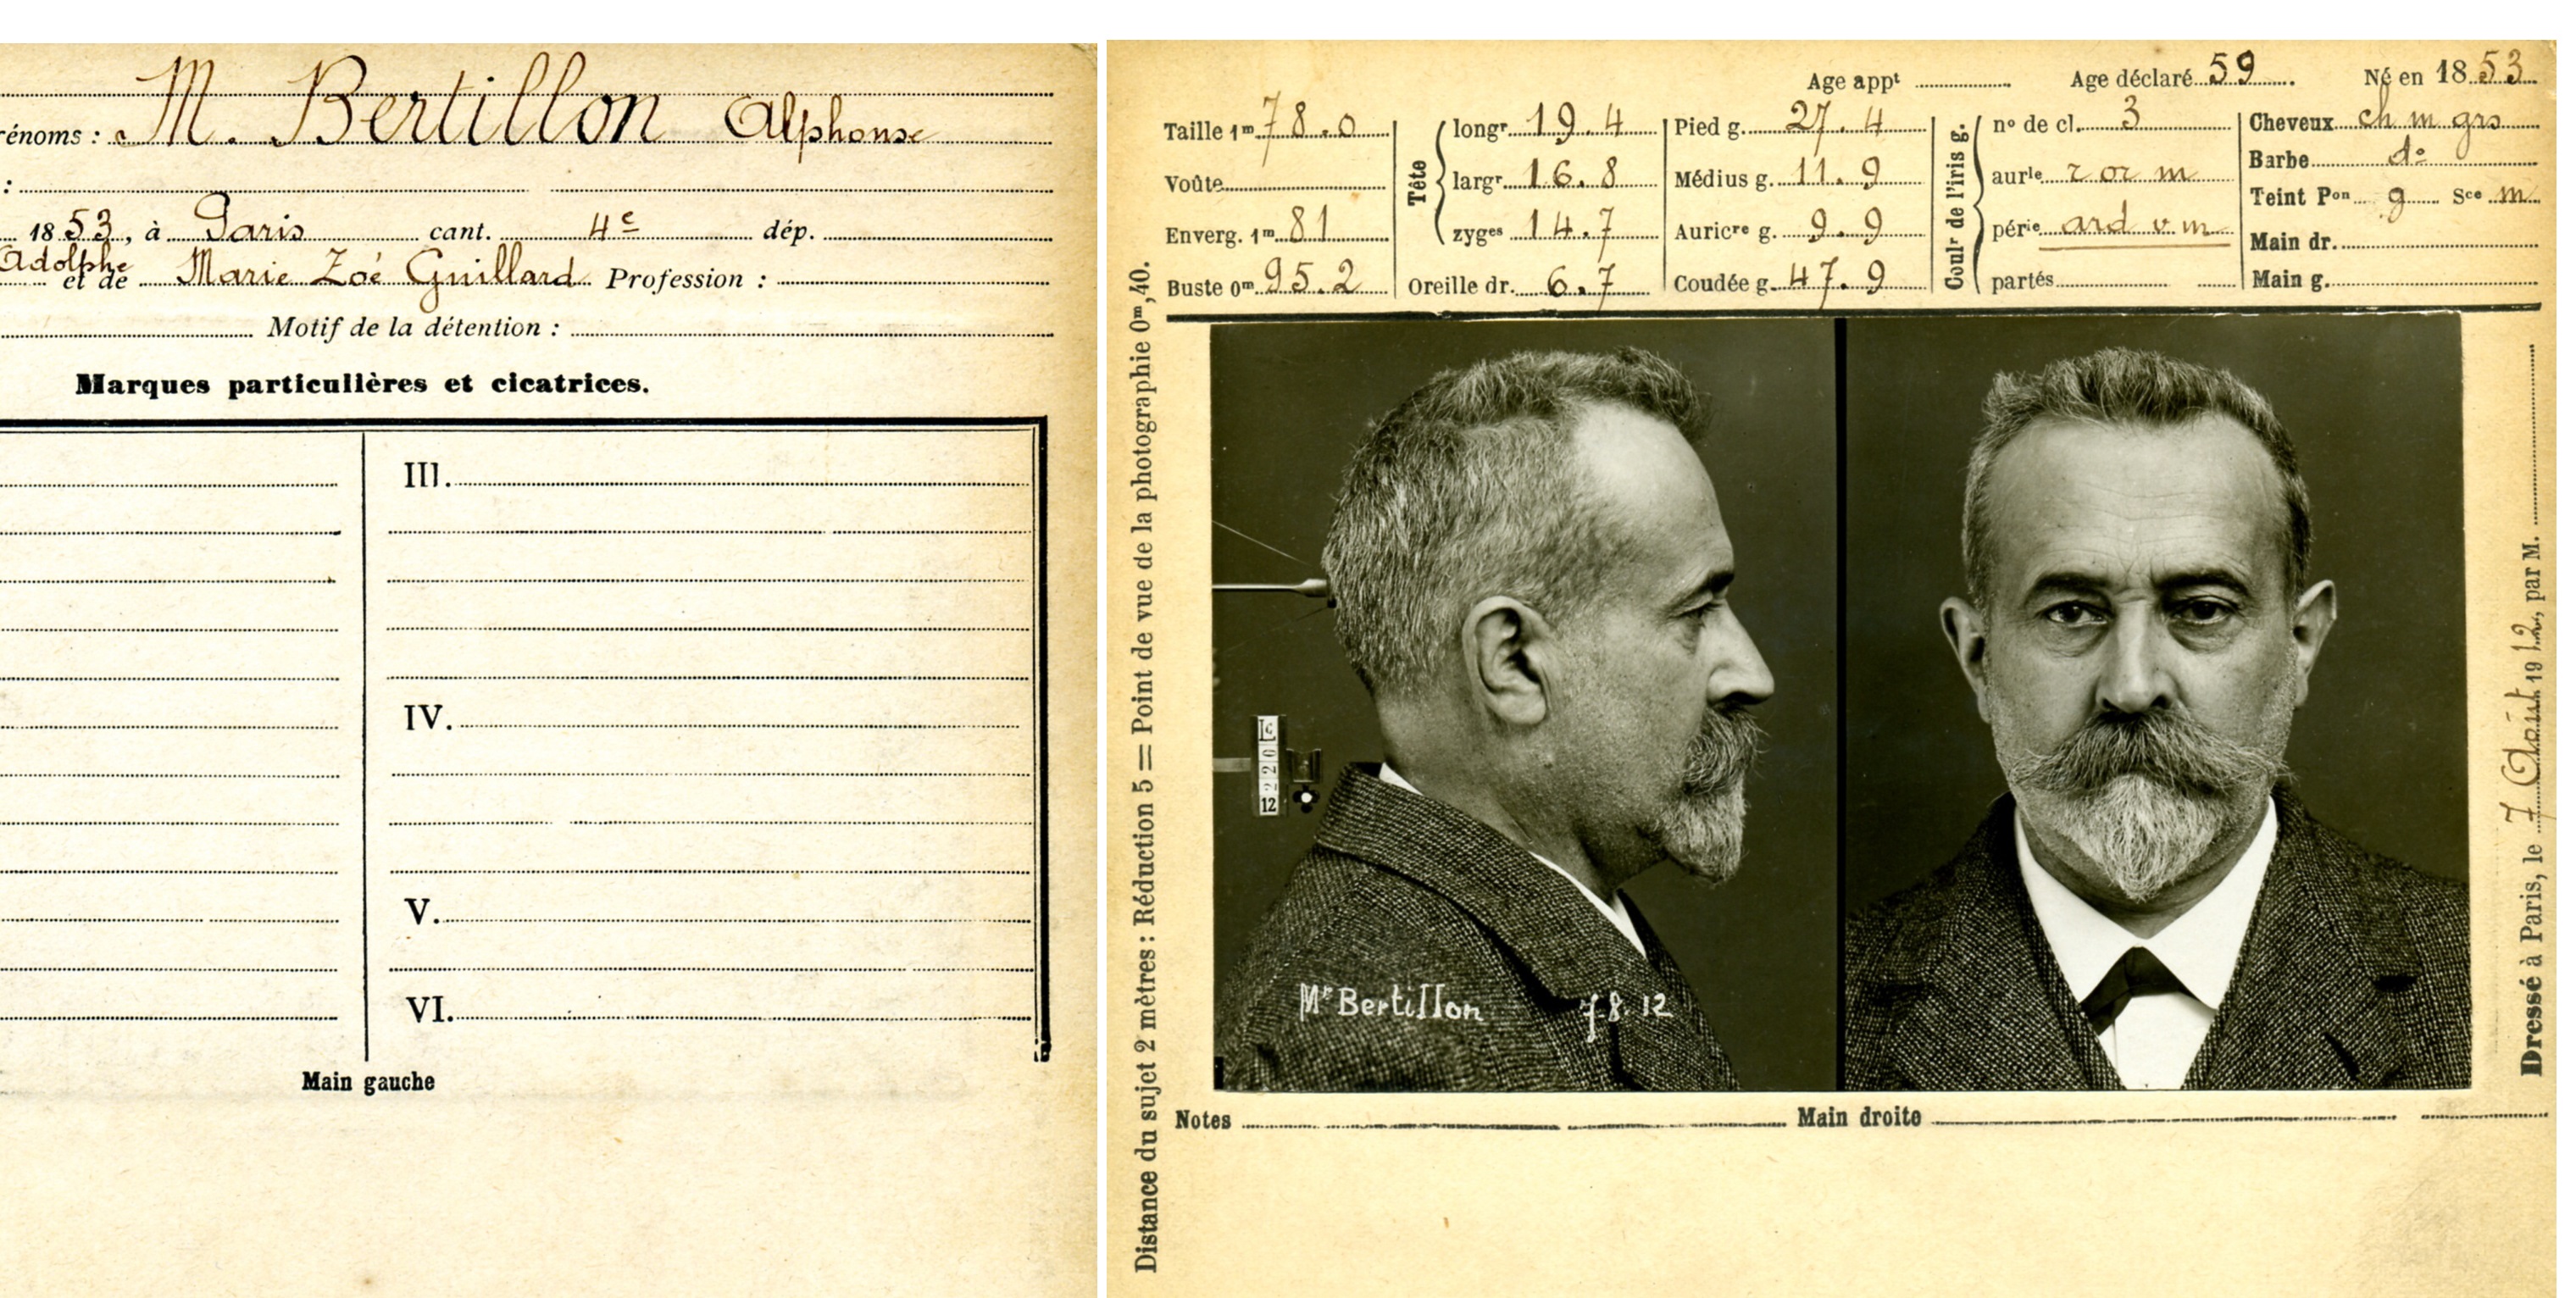 M. Bertillon Alphonse
rénoms :
:
1853, à Paris cant. 4e dép.
Adolphe et de Marie Zoé Guillard Profession :
Motif de la détention :
Marques particulières et cicatrices.
III.
IV.
V.
VI.
Main gauche
Age appt Age déclaré 59 Né en 1853
Taille 1m 78.0
Voûte
Enverg. 1m 81
Buste 0m 95.2
Tête
longr 19.4
largr 16.8
zyges 14.7
Oreille dr. 6.7
Pied g. 27.4
Médius g. 11.9
Auricre g. 9.9
Coudée g. 47.9
Coulr de l'iris g.
no de cl. 3
aurle r or m
périe ard v m
partés
Cheveux ch m grs
Barbe do
Teint Pon g Sce m
Main dr.
Main g.
Distance du sujet 2 mètres : Réduction 5 = Point de vue de la photographie 0m,40.
12
Mr Bertillon 7.8.12
Dressé à Paris, le 7 Août 1912, par M.
Notes Main droite